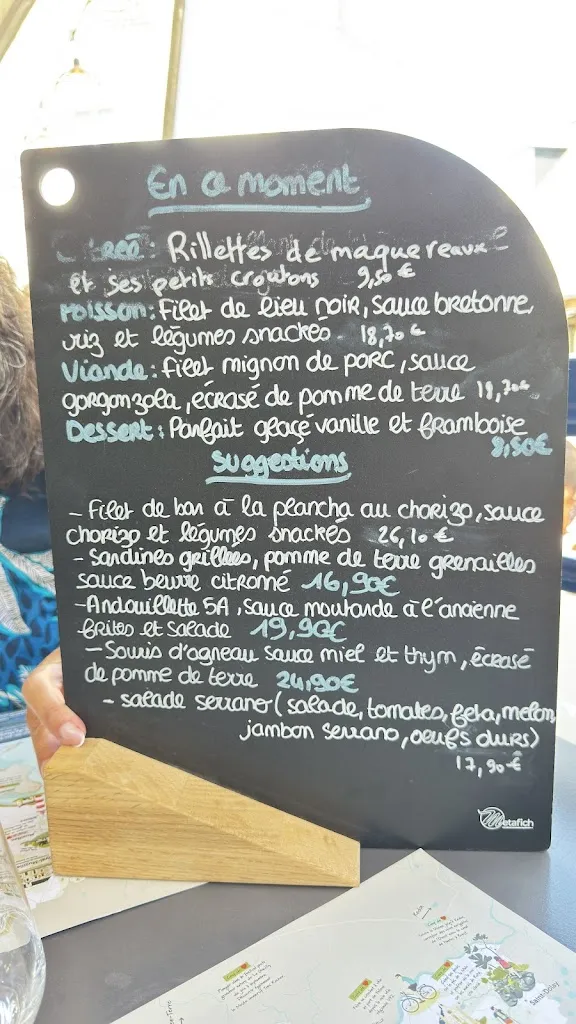 En ce moment
Rillettes de maquereaux
et ses petits croutons 9,50€
Poisson: Filet de lieu noir, sauce bretonne,
riz et légumes snackés 18,70€
Viande: filet mignon de porc, sauce
gorgonzola, écrasé de pomme de terre 18,70€
Dessert: Parfait glaçé vanille et framboise
8,50€
Suggestions
- Filet de bar à la plancha au chorizo, sauce
chorizo et légumes snackés 26,10€
- Sardines grillées, pomme de terre grenailles
sauce beurre citronné 16,90€
- Andouillette 5A, sauce moutarde à l'ancienne
frites et salade 19,90€
- Souris d'agneau sauce miel et thym, écrasé
de pomme de terre 24,90€
- salade serrano (salade, tomates, feta, melon,
jambon serrano, oeufs durs)
17,90€
Metafich